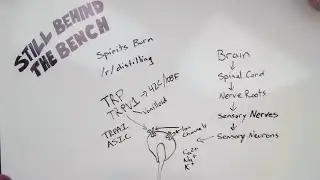 STILL BEHIND
THE BENCH
Spirits Burn
/r/distilling
TRP
TRPV1 → 42C/108F
vanilloid
TRPA1
ASIC
Ion
Channels
Ca2+
Na+
K+
Brain
Spinal Cord
Nerve Roots
Sensory Nerves
Sensory Neurons